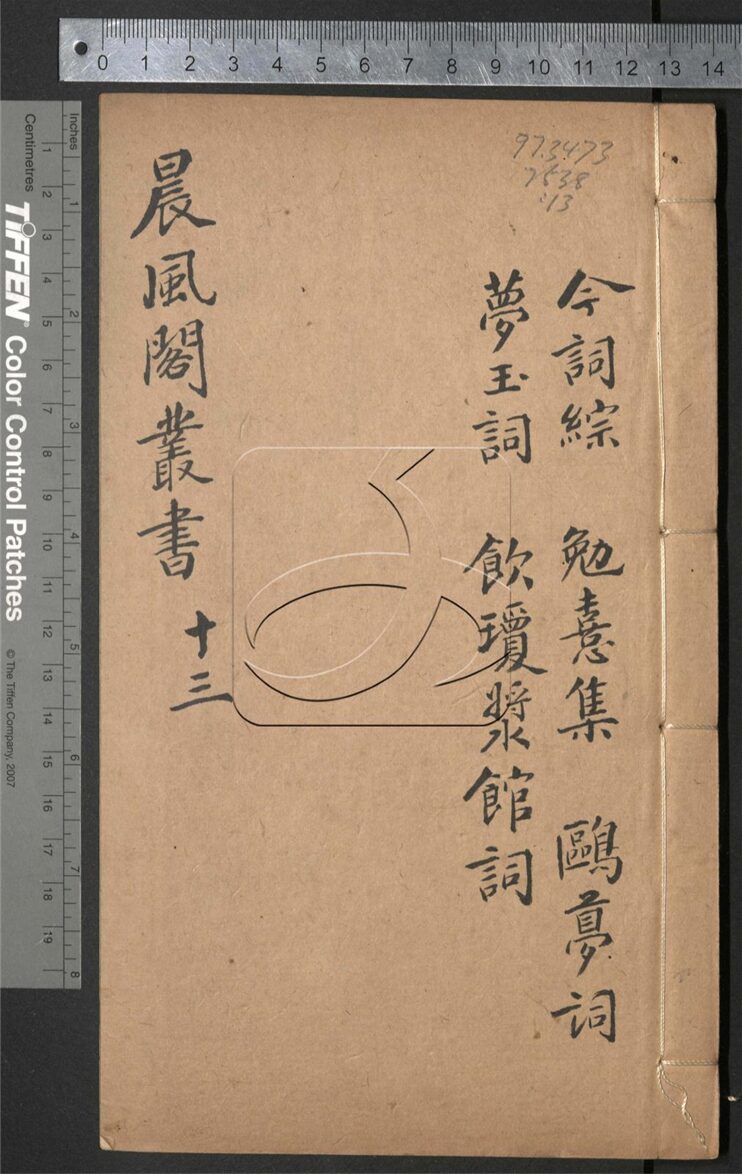 0 1 2 3 4 5 6 7 8 9 10 11 12 13 14
97.3473
7538
:13
今詞綜 勉憙集 鷗夢词
夢玉詞 飲瓊漿館詞
晨風閣叢書 十三
Inches
1 2 3 4 5 6 7 8
Centimetres
1 2 3 4 5 6 7 8 9 10 11 12 13 14 15 16 17 18 19
TIFFEN® Color Control Patches
© The Tiffen Company, 2007